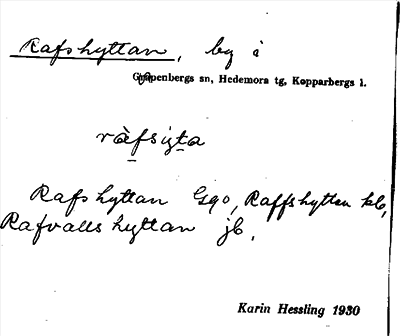 Rafshyttan, by i
Garpenbergs sn, Hedemora tg, Kopparbergs l.
ràfsiṯa
Rafshyttan Gqo, Raffshyttan kb,
Rafvallshyttan jb,
Karin Hessling 1930